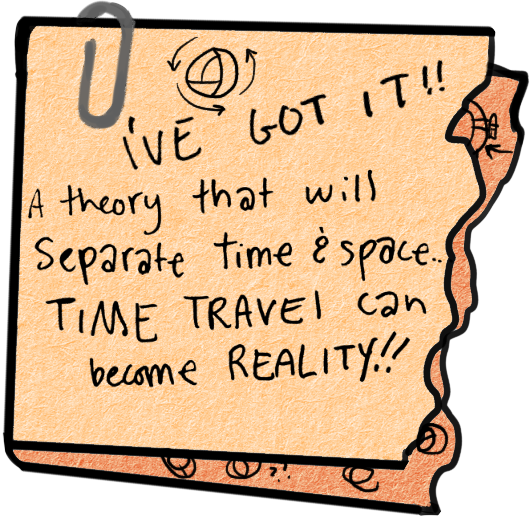 I'VE GOT IT!!
A theory that will
Separate time & space..
TIME TRAVEl can
become REALITY!!
?!